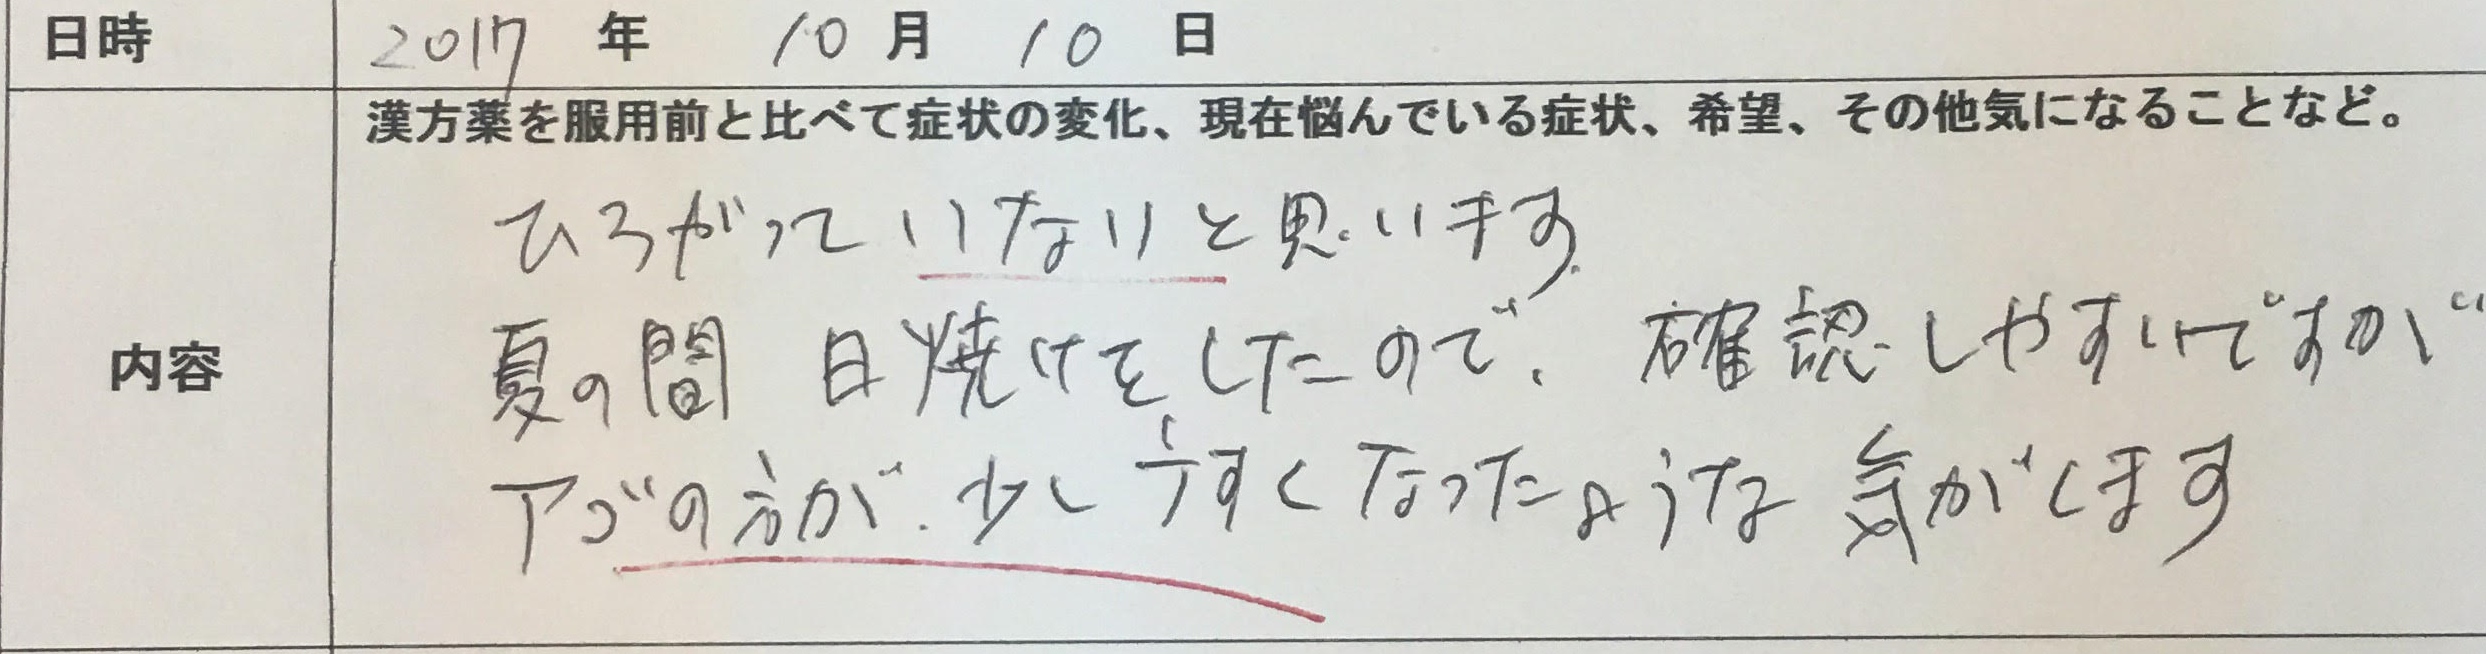 日時 2017 年 10 月 10 日
漢方薬を服用前と比べて症状の変化、現在悩んでいる症状、希望、その他気になることなど。
内容
ひろがって いないと思います.
夏の間 日焼けをしたので、確認しやすいですが
アゴの方が、少しうすくなったような気がします